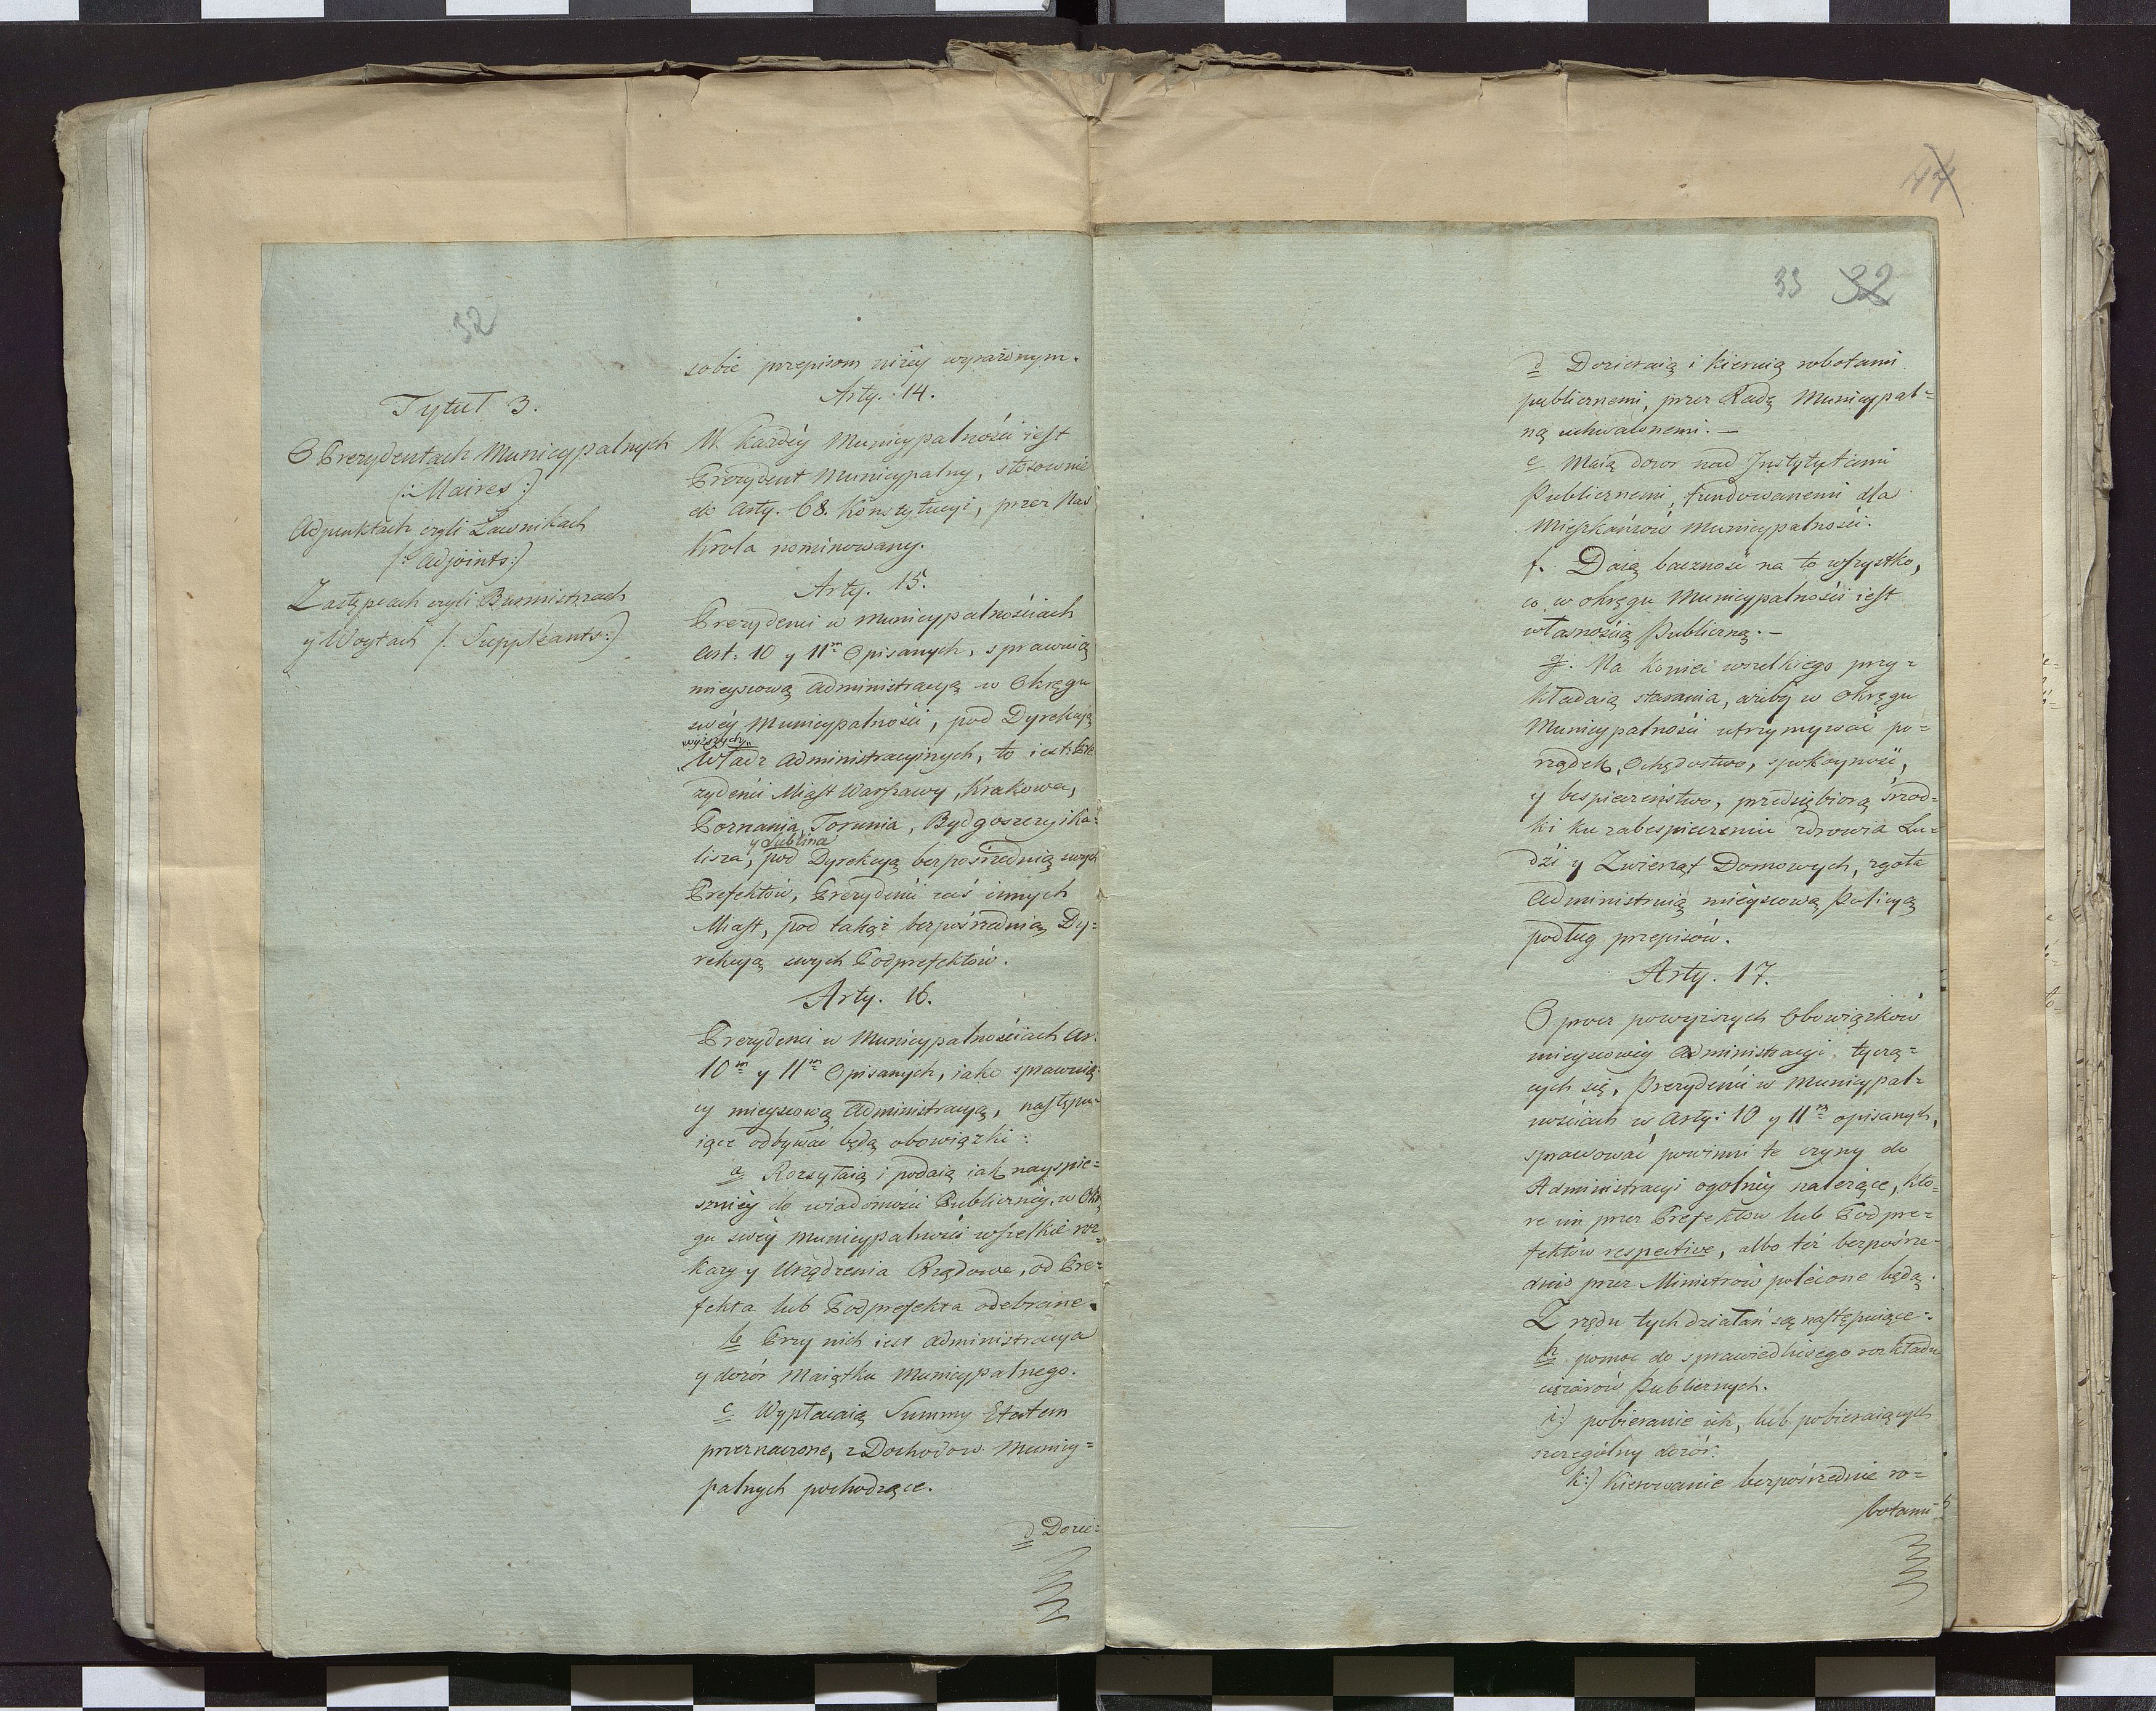 32
Tytuł 3.
O Prezydentach Municypalnych
(: Maires :)
Adjunktach czyli Ławnikach
(: Adjoints :)
Zastępcach czyli Burmistrzach
y Woytach (: Suppléants :)
sobie przepisom niżéy wyrażonym.
Arty. 14.
W każdéy Municypalności iest
Prezydent Municypalny, stosownie
do Arty. 68. Konstytucyi, przez Nas
Krola nominowany.
Arty. 15.
Prezydenci w Municypalnościach
Art: 10 y 11m Opisanych, sprawuią
mieyscową Administracyą w Okręgu
swéy Municypalności, pod Dyrekcyą
wyższych
Władz Administracyjnych, to iest: Pre
zydenci Miast Warszawy, Krakowa,
Poznania, Torunia, Bydgoszczy i Ka=
y Lublina
lisza, pod Dyrekcyą bezpośrednią swych
Prefektów, Prezydenci zaś innych
Miast, pod takąż bezpośrednią Dy=
rekcyą swych Podprefektów.
Arty. 16.
Prezydenci w Municypalnościach Ar:
10m y 11m Opisanych, iako sprawuią=
cy mieyscową Administracyą, następu=
iące odbywać będą obowiązki:
a Rozsyłaią i podaią iak nayspie=
szniéy do wiadomości Publicznéy, w Okrę
gu swéy Municypalności wszelkie roz=
kazy y Urządzenia Rządowe, od Pre=
fekta lub Podprefekta odebrane.
b Przy nich iest Administracya
y dozór Maiątku Municypalnego.
c. Wypłacaią Summy Etatem
przeznaczone, z Dochodow Municy=
palnych pochodzące.
d Dozie=
44
33 32
d Dozieraią i kieruią robotami
publicznemi, przez Radę Municypal=
ną uchwalonemi. —
e. Maią dozor nad Instytutami
Publicznemi, fundowanemi dla
Mieszkańców Municypalności.
f. Daią baczność na to wszystko,
co w okręgu Municypalności iest
własnością Publiczną. —
g. Na koniec wszelkiego przy=
kładaią starania, ażeby w Okręgu
Municypalności utrzymywać po=
rządek, Ochędostwo, spokoyność,
y bespieczeństwo, przedsiębiorą śrzod=
ki ku zabespieczeniu zdrowia Lu=
dzi y Zwierząt Domowych, zgoła
Administruią mieyscową Policyą
podług przepisów.
Arty. 17.
Oprocz powyższych Obowiązków
mieyscowéy Administracyi tyczą=
cych się, Prezydenci w Municypal=
nościach w Arty: 10 y 11m opisanych,
sprawować powinni te czyny do
Administracyi ogolnéy należące, kto=
re im przez Prefektow lub Podpre=
fektów respective, albo téż bezpośrze=
dnio przez Ministrów polécone będą.
Z rzędu tych działań są następuiące:
h pomoc do sprawiedliwego rozkładu
ciężarów Publicznych.
i:) pobieranie ich, lub pobieraiących
szczególny dozór.
k:) Kierowanie bezpośrzednie ro=
botami